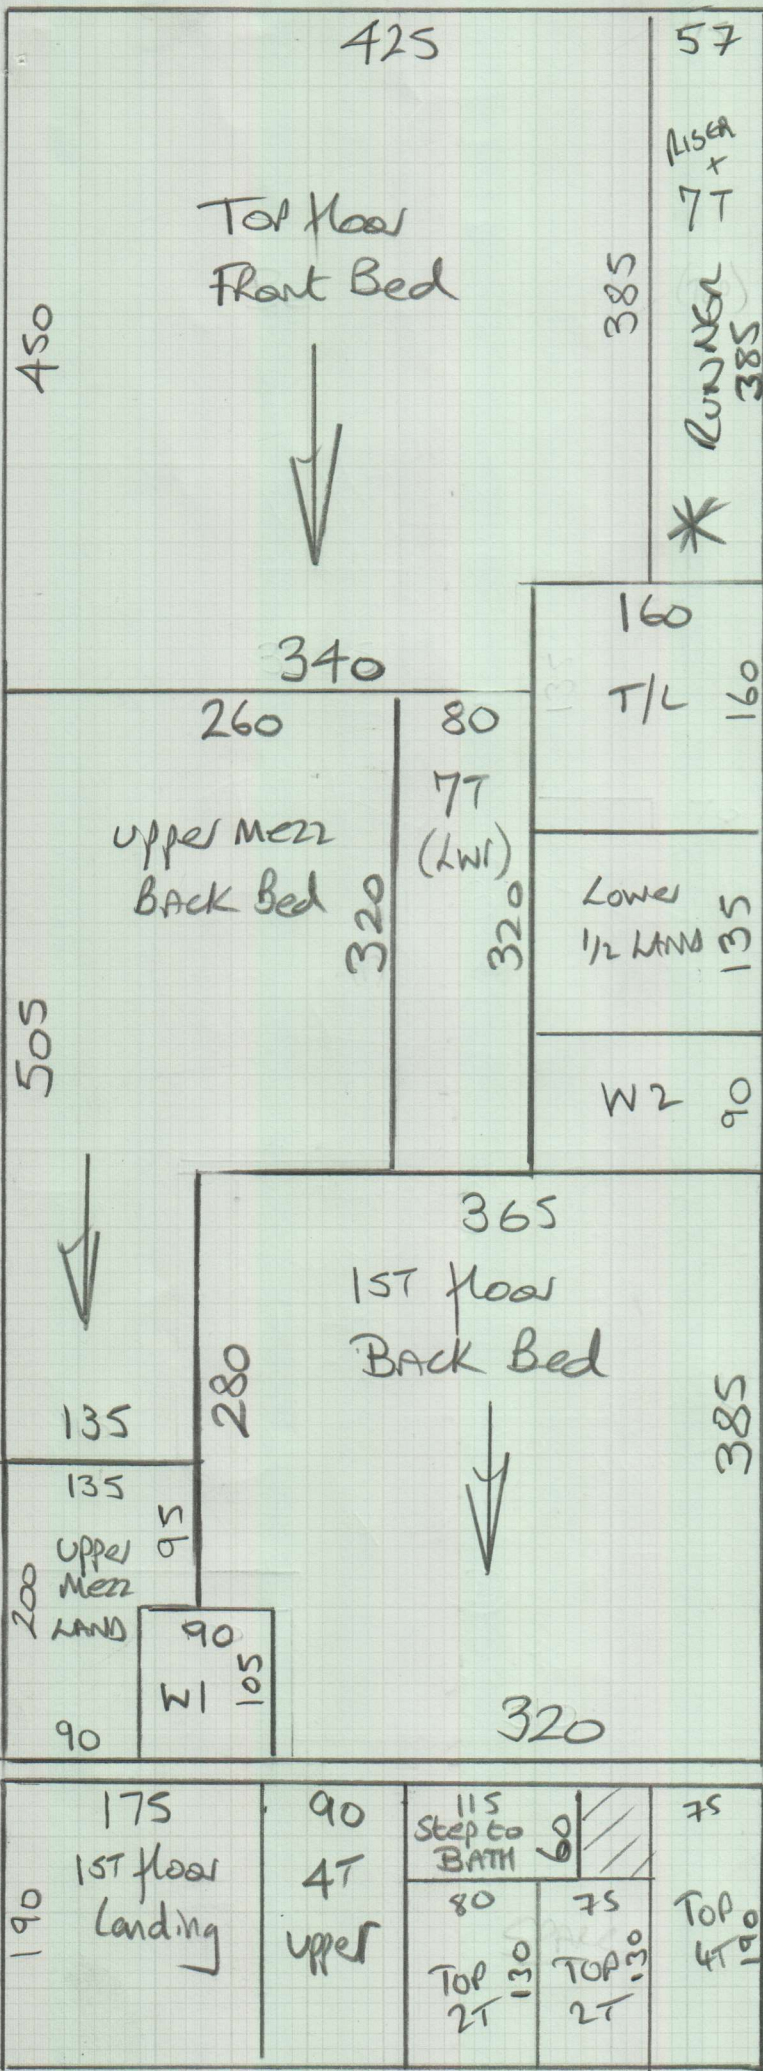 425
57
RISER
+
7T
RUNNER
385
*
Top floor
Front Bed
385
450
340
160
T/L
160
260
80
7T
(LW1)
320
320
upper Mezz
BACK Bed
Lower
1/2 LAND
135
505
W2
90
365
1ST floor
BACK Bed
280
385
135
135
95
upper
Mezz
LAND
200
90
W1
105
90
320
175
1ST floor
Landing
190
90
4T
upper
115
Step to
BATH
60
80
TOP
2T
130
75
TOP
2T
130
75
TOP
4T
190